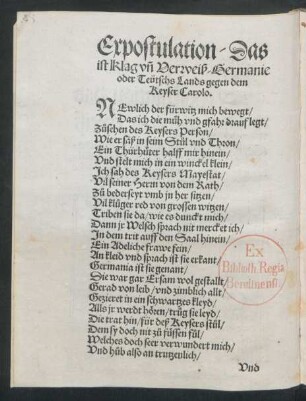 Expostulation/ Das
ist Klag vñ Verweiß/ Germanie
oder Teütschs Lands gegen dem
Keyser Carolo.
NEwlich der fürwitz mich bewegt/
Das ich die müh vnd gfahr drauf legt/
Züschen des Keysers Person/
Wie er säß in seim Stůl vnd Thron/
Ein Thürhüter halff mir hinein/
Vnd stelt mich in ein winckel klein/
Ich sah des Keysers Mayestat/
Vil seiner Herrn von dem Rath/
Zů beder seyt vmb jn her sitzen/
Vil klůger red von grossen witzen/
Triben sie da/ wie es dunckt mich/
Dann jr Welsch sprach nit mercket ich/
In dem trit auff den Saal hinein/
Ein Adeliche frawe fein/
An kleid vnd sprach ist sie erkant/
Germania ist sie genant/
Sie war gar Ersam wol gestallt/
Gerad von leib/ vnd zimblich allt/
Gezieret in ein schwartzes kleyd/
Alls jr werdt hören/ trůg sie leyd/
Die trat hin/ für deß Keysers stůl/
Dem sy doch nit zů füssen fül/
Welches doch seer verwundert mich/
Vnd hůb also an trutzenlich/
Vnd
Ex
Biblioth. Regia
Berolinensi